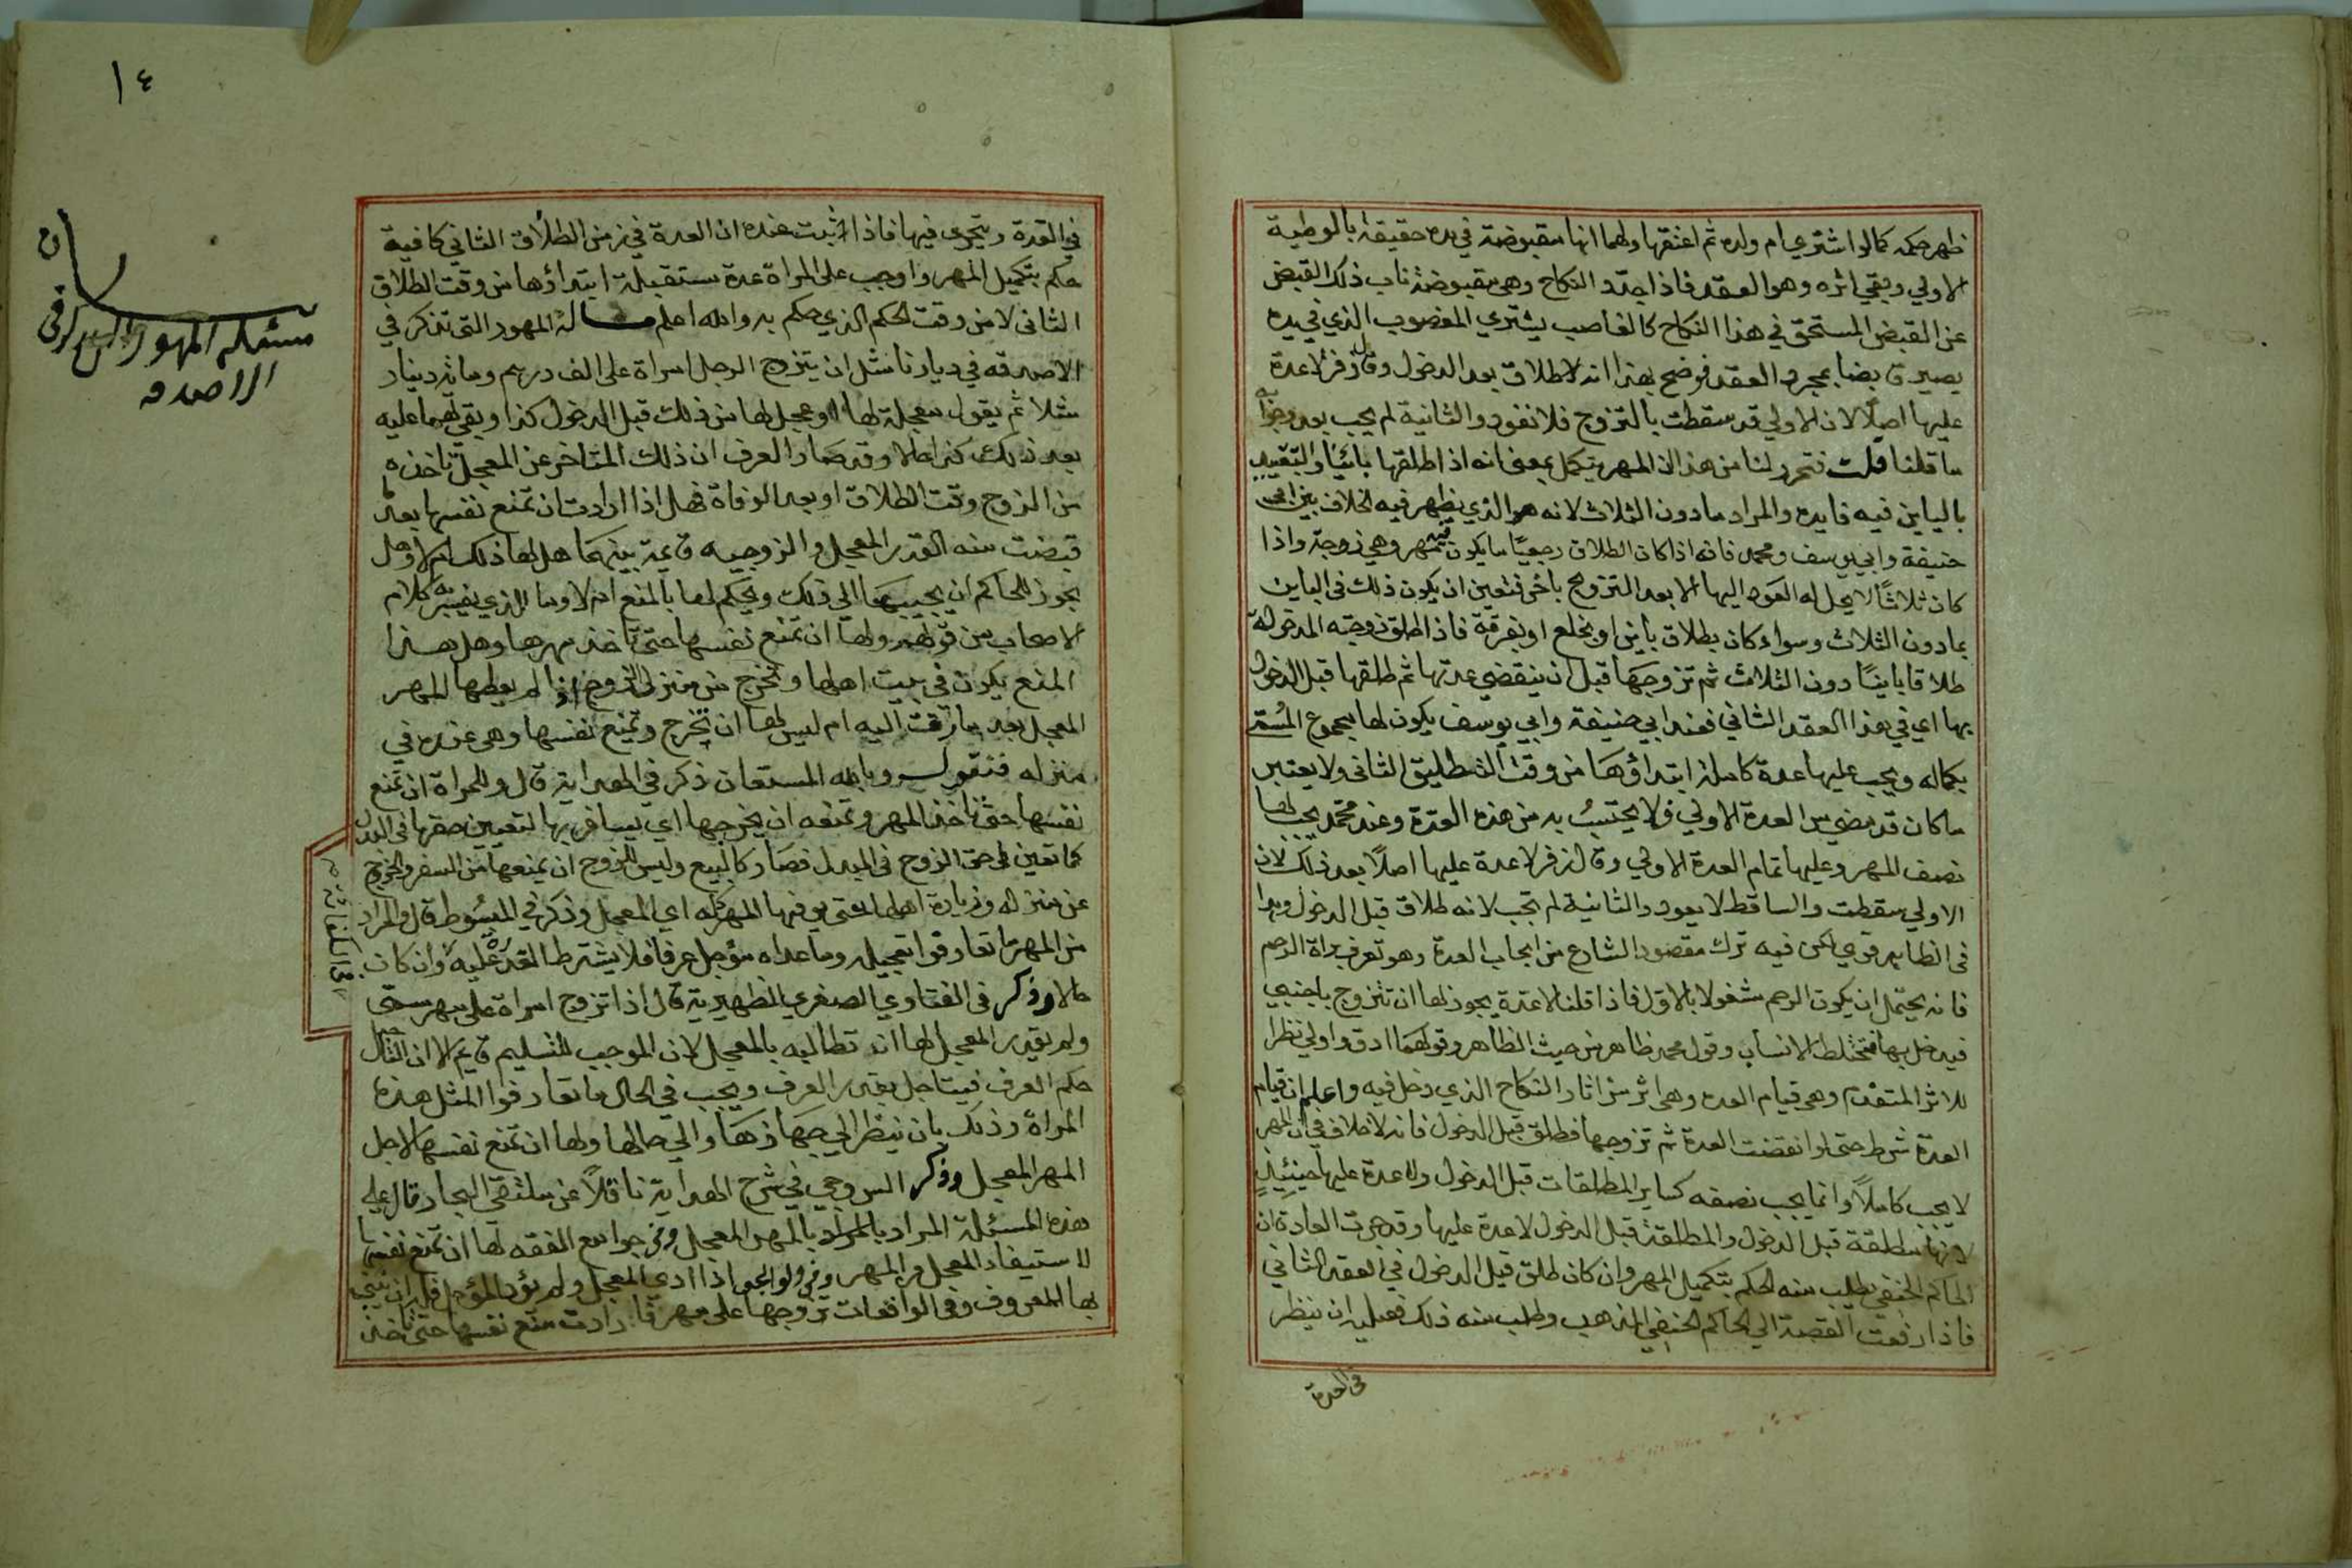 ظهر حكمه كما لو اشتري ام ولده ثم اعتقها ولهما انها مقبوضة في يده حقيقة بالوطية
الاولي وبقي اثره وهو العقد فاذا جدد النكاح وهي مقبوضة ناب ذلك القبض
عن القبض المستحق في هذا النكاح كالغاصب يشتري المغصوب الذي في يده
يصير قابضا بمجرد العقد فوضح بهذا انه لا طلاق بعد الدخول وقال زفر لا عدة
عليها اصلا لان الاولي قد سقطت بالتزوج فلا تعود والثانية لم يجب بعد وجوابه
ما قلنا قلت فتحرر لنا من هذا ان المهر يتكمل بمعني انه اذا طلقها بائنا والتقييد
بالباين فيه فايده والمراد مادون الثلاث لانه هو الذي يظهر فيه الخلاف بين ابي
حنيفة وابي يوسف ومحمد فانه اذا كان الطلاق رجعيا ما يكون ثمه مهر وهي زوجة واذا
كان ثلاثا لا يحل له العود اليها الا بعد التزوج باخر فتعين ان يكون ذلك في الباين
بما دون الثلاث وسواء كان بطلاق باين او بخلع او بفرقة فاذا طلق زوجته المدخولة
طلاقا باينا دون الثلاث ثم تزوجها قبل ان ينقضي عدتها ثم طلقها قبل الدخول
بها اي في هذا العقد الثاني فعند ابي حنيفة وابي يوسف يكون لها مجموع المسمي
بكماله ويجب عليها عدة كاملة ابتداؤها من وقت التطليق الثاني ولا يعتبر
ما كان قد مضي من العدة الاولي ولا يحتسب به من هذه العدة وعند محمد يجب لها
نصف المهر وعليها تمام العدة الاولي وقال زفر لا عدة عليها اصلا بعد ذلك لان
الاولي سقطت والساقط لا يعود والثانية لم تجب لانه طلاق قبل الدخول وهذا
في الظاهر قوي لكن فيه ترك مقصود الشارع من ايجاب العدة وهو تعرف براة الرحم
فانه يحتمل ان يكون الرحم مشغولا بالاول فاذا قلنا لا عدة يجوز لها ان تتزوج باجنبي
فيدخل بها فتختلط الانساب وقول محمد ظاهر من حيث الظاهر وقولهما ادق واولي نظرا
للاثر المتقدم وهي قيام العده وهي اثر من اثار النكاح الذي دخل فيه واعلم ان قيام
العدة شرط حتي لو انقضت العدة ثم تزوجها فطلق قبل الدخول فانه لا خلاف في ان المهر
لا يجب كاملا وانما يجب نصفه كساير المطلقات قبل الدخول ولا عدة عليها حينئيذ
لانها مطلقة قبل الدخول والمطلقة قبل الدخول لا عدة عليها وقد جرت العادة ان
الحاكم الحنفي يطلب منه الحكم بتكميل المهر وان كان طلق قبل الدخول في العقد الثاني
فاذا رفعت القصة الي الحاكم الحنفي المذهب وطلب منه ذلك فعليه ان ينظر
في العدة
١٤
في العدة ويتحري فيها فاذا ثبت عنده ان العدة في زمن الطلاق الثاني كافية
حكم بتكميل المهر واوجب علي المراة عدة مستقبلة ابتداؤها من وقت الطلاق
الثاني لا من وقت الحكم الذي حكم به والله اعلم مسالة المهور التي تذكر في
الاصدقه في ديارنا مثل ان يتزوج الرجل امراة علي الف درهم ومائة دينار
مثلا ثم يقول معجلة لها او عجل لها من ذلك قبل الدخول كذا وبقي لها عليه
بعد ذلك كذا حالا وقد صار العرف ان ذلك المتاخر عن المعجل تاخذه
من الزوج وقت الطلاق او بعد الوفاة فهل اذا ارادت ان تمنع نفسها بعد
قبضت منه القدر المعجل والزوجيه قايمة بينهما هل لها ذلك ام لا وهل
يجوز للحاكم ان يجيبها الي ذلك ويحكم لها بالمنع ام لا وما الذي يفسر به كلام
الاصحاب من قولهم ولها ان تمنع نفسها حتي تاخذ مهرها وهل هذا
المنع يكون في بيت اهلها وتخرج من منزل الزوج اذا لم يعطها المهر
المعجل بعد ما زفت اليه ام ليس لها ان تخرج وتمنع نفسها وهي عنده في
منزله فنقول وبالله المستعان ذكر في الهداية قال وللمراة ان تمنع
نفسها حتي تاخذ المهر وتمنعه ان يخرجها اي يسافر بها لتعيين حقها في البدل
كما تعين حق الزوج في المبدل فصار كالبيع وليس للزوج ان يمنعها من السفر والخروج
عن منزله وزيارة اهلها حتي يوفيها المهر كله اي المعجل وذكر في المبسوط قال والمراد
من المهر ما تعارفوا تعجيله وما عداه مؤجل عرفا فلا يشترط القدرة عليه وان كان
حالا وذكر في الفتاوي الصغري الظهيرية قال اذا تزوج امراة علي مهر مسمي
ولم يقدر المعجل لها ان تطالبه بالمعجل لان الموجب للتسليم قايم الا ان التاجيل
حكم العرف فيتاجل بقدر العرف ويجب في الحال ما تعارفوا المثل هذه
المراة وذلك بان ينظر الي جهازها والي حالها ولها ان تمنع نفسها لاجل
المهر المعجل وذكر السروجي في شرح الهداية ناقلا عن ملتقي البحار قال علي
هذه المسئلة المراد بالمراد بالمهر المعجل وفي جوامع الفقه لها ان تمنع نفسها
لاستيفاء المعجل من المهر وفي الولوالجي اذا ادي المعجل ولم يؤد المؤجل فله ان يبني
بها للمعروف وفي الواقعات تزوجها علي مهر فارادت منع نفسها حتي تاخذ
مسئله المهور التي تذكر في
الاصدقه